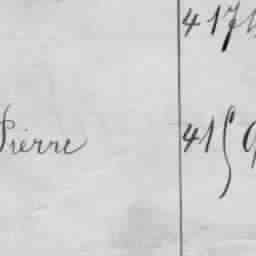 417
Pierre 4159